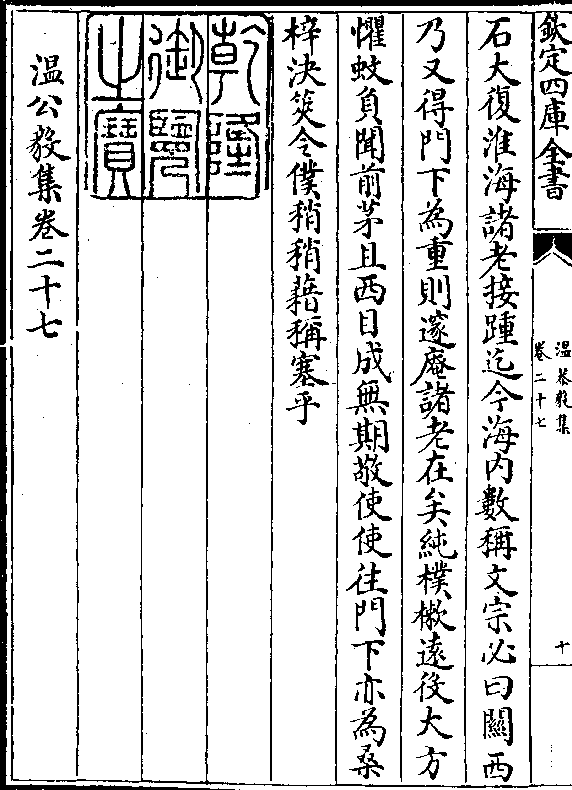 欽定四庫全書
溫恭毅集
卷二十七
十
石大復淮海諸老接踵迄今海内數稱文宗必曰關西
乃又得門下為重則邃庵諸老在矣純樸樕遠役大方
懼蚊負聞前茅且西日成無期敬使使往門下亦為桑
梓決筴令僕稍稍藉稱塞乎
乾隆
御覽
之寶
溫公毅集卷二十七